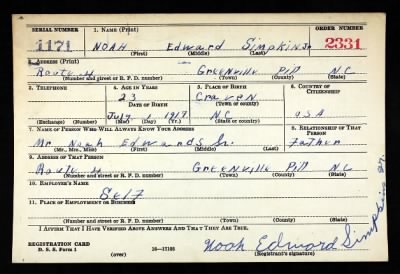 SERIAL NUMBER 1. NAME (Print) ORDER NUMBER
1171 NOAH Edward Simpkin Jr 2331
(First) (Middle) (Last)
2. ADDRESS (Print)
Route 4 Greenville Pitt NC
(Number and street or R. F. D. number) (Town) (County) (State)
3. TELEPHONE 4. AGE IN YEARS 5. PLACE OF BIRTH 6. COUNTRY OF CITIZENSHIP
23 Craven
DATE OF BIRTH (Town or county)
July 1 1917 NC USA
(Exchange) (Number) (Mo.) (Day) (Yr.) (State or country)
7. NAME OF PERSON WHO WILL ALWAYS KNOW YOUR ADDRESS 8. RELATIONSHIP OF THAT PERSON
Mr Noah Edwards Sr. Father
(Mr., Mrs., Miss) (First) (Middle) (Last)
9. ADDRESS OF THAT PERSON
Route 4 Greenville Pitt NC
(Number and street or R. F. D. number) (Town) (County) (State)
10. EMPLOYER'S NAME
Self
11. PLACE OF EMPLOYMENT OR BUSINESS
(Number and street or R. F. D. number) (Town) (County) (State)
I AFFIRM THAT I HAVE VERIFIED ABOVE ANSWERS AND THAT THEY ARE TRUE.
REGISTRATION CARD
D. S. S. Form 1 (over) 16—17105 Noah Edward Simpkins Jr.
(Registrant's signature)